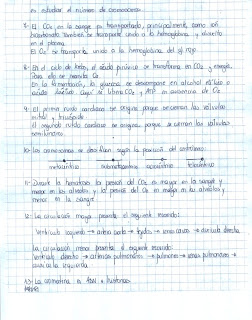 es estudiar el número de cromosomas.
7- El CO2 en la sangre es transportado, principalmente, como ion
bicarbonato. También se transporta unido a la hemoglobina y disuelto
en el plasma.
El O2 se transporta unido a la hemoglobina del glóbulo rojo
8- En el ciclo de Krebs, el ácido pirúvico se transforma en CO2 y energía.
Para ello se necesita O2
En la fermentación, la glucosa se descompone en alcohol etílico o
ácido láctico. Aquí se libera CO2 y ATP en ausencia de O2.
9- El primer ruido cardiaco se origina porque se cierran las válvulas
mitral y tricúspide
El segundo ruido cardiaco se origina porque se cierran las válvulas
semilunares.
10- Los cromosomas se clasifican según la posición del centrómero:
metacéntrico submetacéntrico acrocéntrico telocéntrico
11- Durante la hematosis la presión del CO2 es mayor en la sangre y
menor en los alveolos; y la presión del O2 es mayor en los alveolos y
menor en la sangre.
12- La circulación mayor presenta el siguiente recorrido:
Ventrículo izquierdo → arteria aorta → tejidos → venas cavas → aurícula derecha
La circulación menor presenta el siguiente recorrido:
Ventrículo derecho → arterias pulmonares → pulmones → venas pulmonares →
aurícula izquierda
13- La cromatina es ADN + histonas